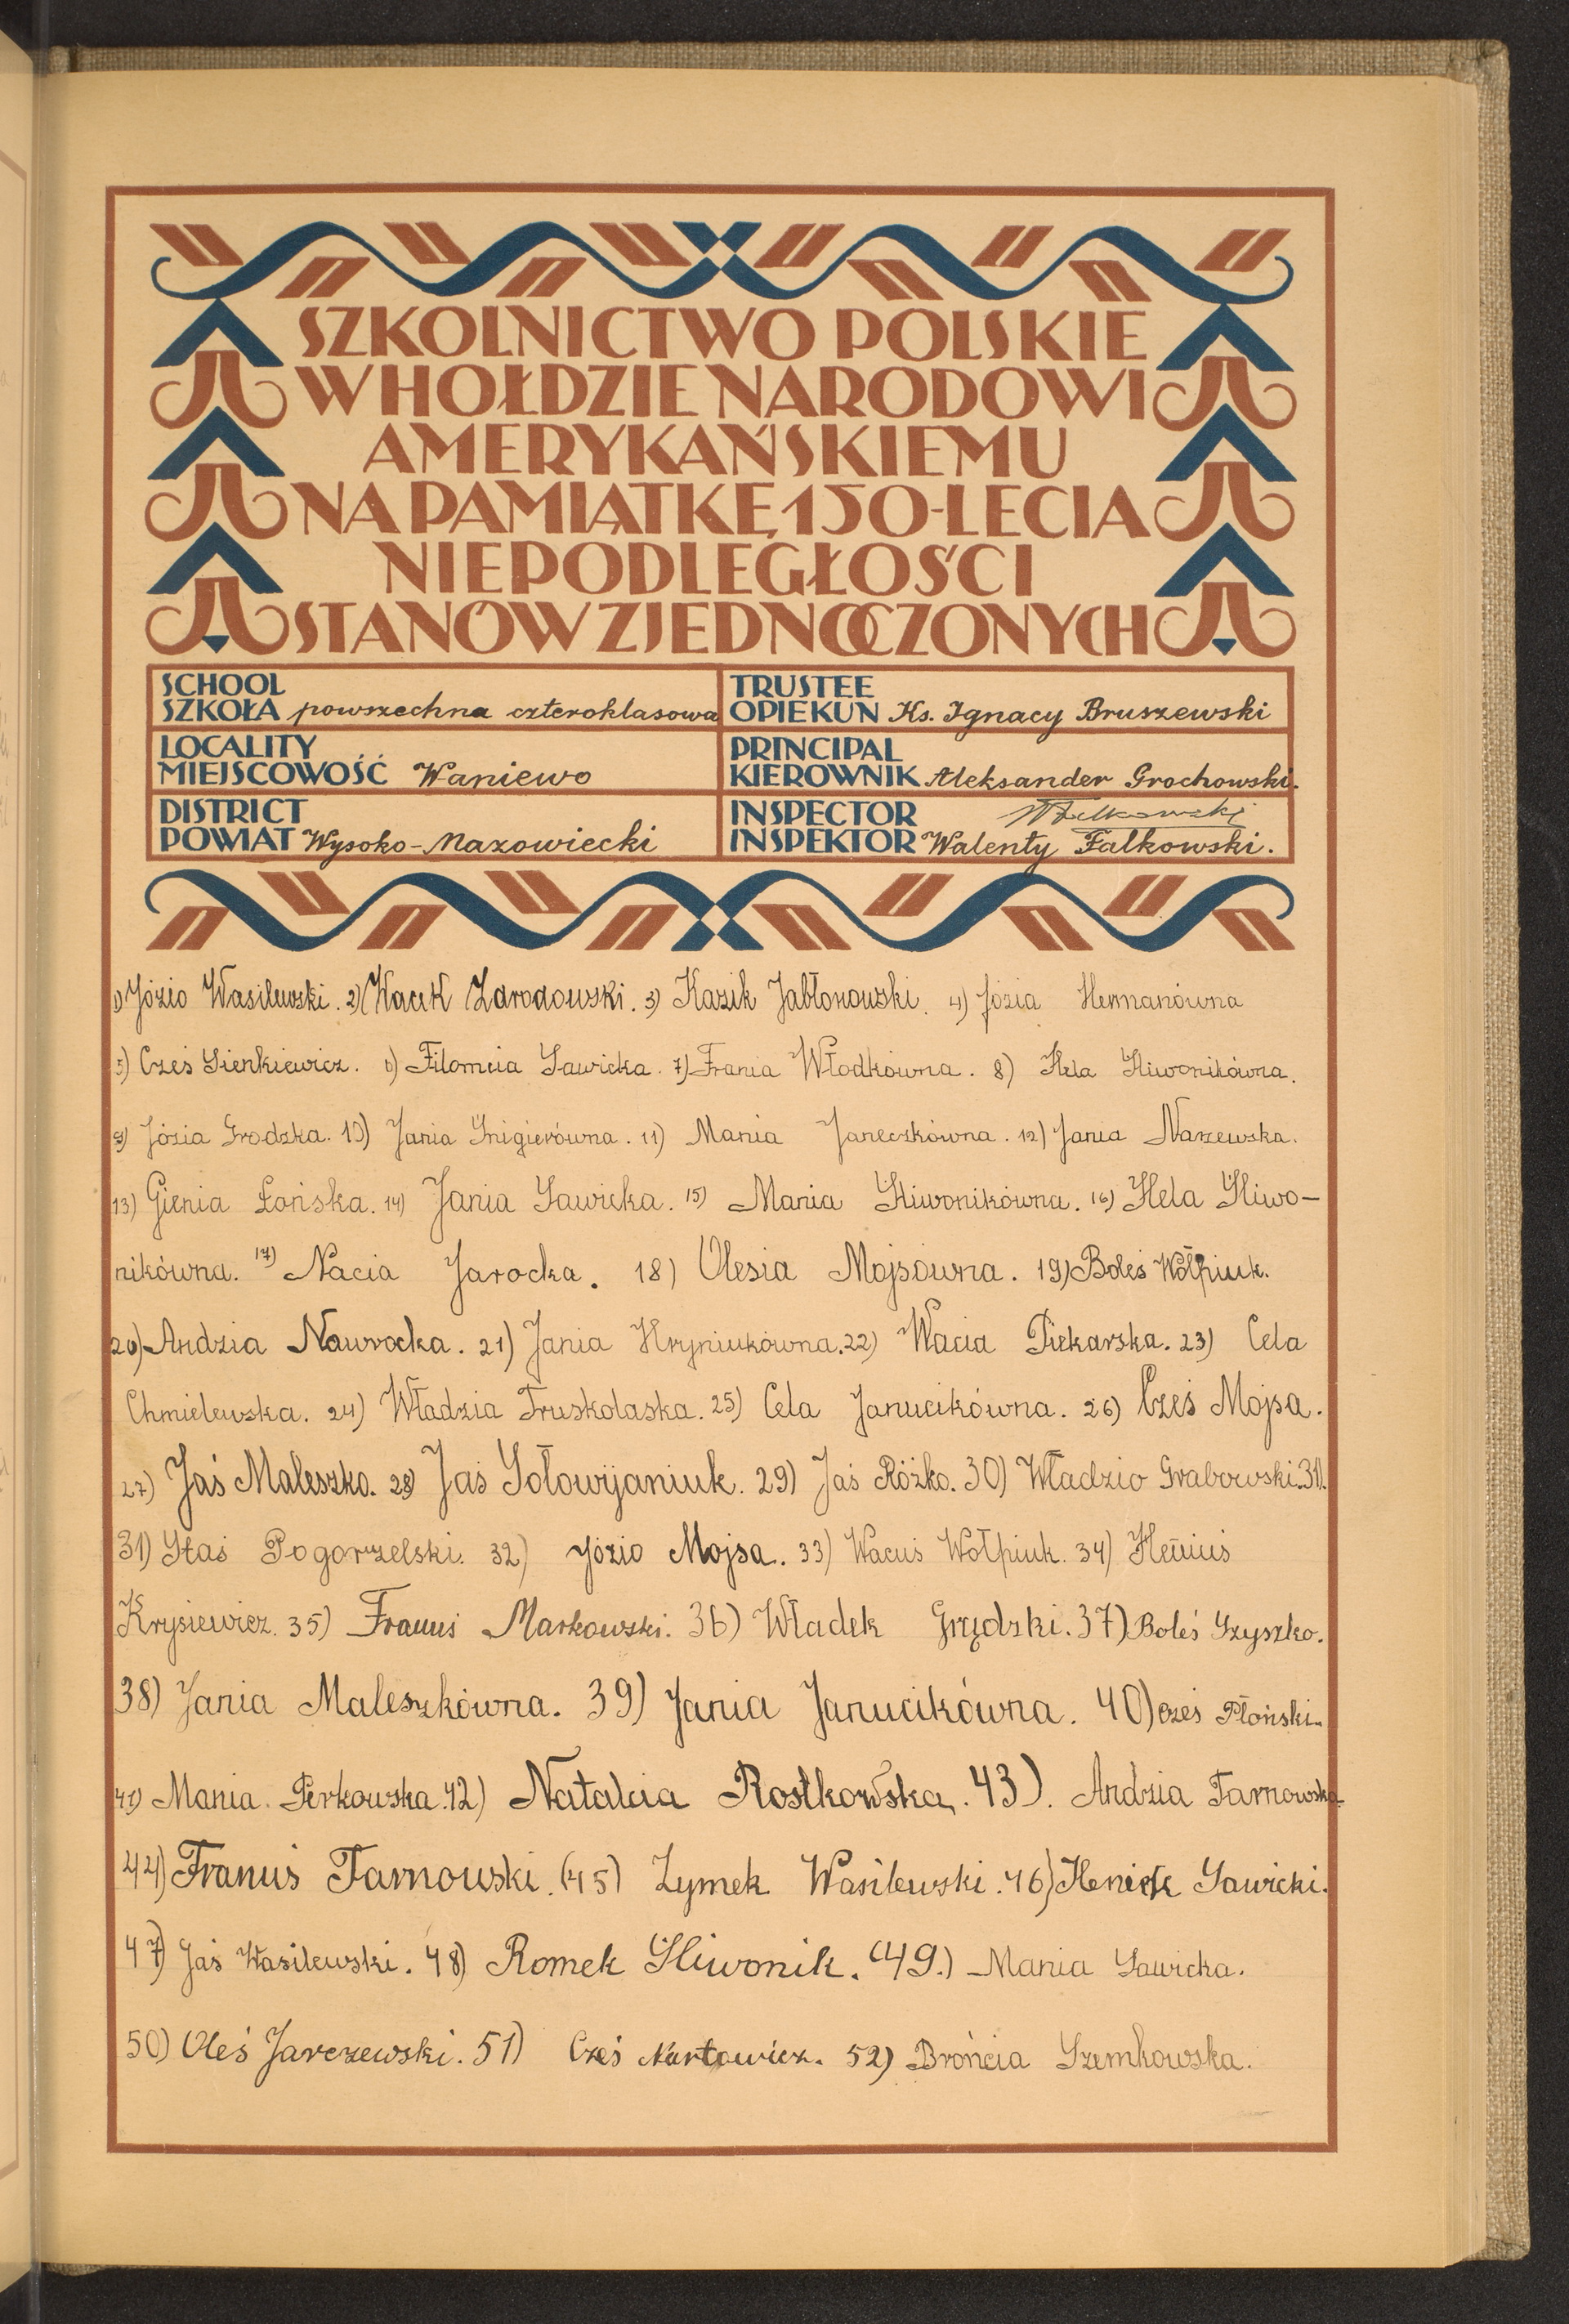 SZKOLNICTWO POLSKIE
W HOŁDZIE NARODOWI
AMERYKAŃSKIEMU
NA PAMIĄTKĘ 150-LECIA
NIEPODLEGŁOŚCI
STANÓW ZJEDNOCZONYCH
SCHOOL
SZKOŁA powszechna czteroklasowa
TRUSTEE
OPIEKUN Ks. Ignacy Bruszewski
LOCALITY
MIEJSCOWOŚĆ Waniewo
PRINCIPAL
KIEROWNIK Aleksander Grochowski.
DISTRICT
POWIAT Wysoko-Mazowiecki
INSPECTOR WFalkowski
INSPEKTOR Walenty Falkowski.
1) Józio Wasilewski. 2) Wacek Zdrodowski. 3) Kazik Jabłonowski. 4) Józia Hermanówna
5) Cześ Sienkiewicz. 6) Filomcia Sawicka. 7) Frania Włodkówna. 8) Hela Śliwonikówna.
9) Józia Grodzka. 10) Jania Śnigierówna. 11) Mania Janeczkówna. 12) Jania Naszewska.
13) Gienia Łońska. 14) Jania Sawicka. 15) Mania Śliwonikówna. 16) Hela Śliwo-
nikówna. 17) Nacia Jarocka. 18) Olesia Mojsówna. 19) Boleś Wołpiuk.
20) Andzia Nawrocka. 21) Jania Hryniukówna. 22) Wacia Piekarska. 23) Cela
Chmielewska. 24) Władzia Truskolaska. 25) Cela Janucikówna. 26) Cześ Mojsa.
27) Jaś Maleszko. 28) Jaś Sołowijaniuk. 29) Jaś Różko. 30) Władzio Grabowski. 31).
31) Staś Pogorzelski. 32) Józio Mojsa. 33) Wacuś Wołpiuk. 34) Heniuś
Krysiewicz. 35) Franuś Markowski. 36) Władek Grądzki. 37) Boleś Szyszko.
38) Jania Maleszkówna. 39) Jania Janucikówna. 40) Cześ Płoński.
41) Mania Perkowska. 42) Natalcia Rostkowska. 43). Andzia Tarnowska.
44) Franuś Tarnowski. (45) Zymek Wasilewski. 46) Heniek Sawicki.
47) Jaś Wasilewski. 48) Romek Śliwonik. (49.) Mania Sawicka.
50) Oleś Jarczewski. 51) Cześ Nartowicz. 52) Brońcia Szemkowska.